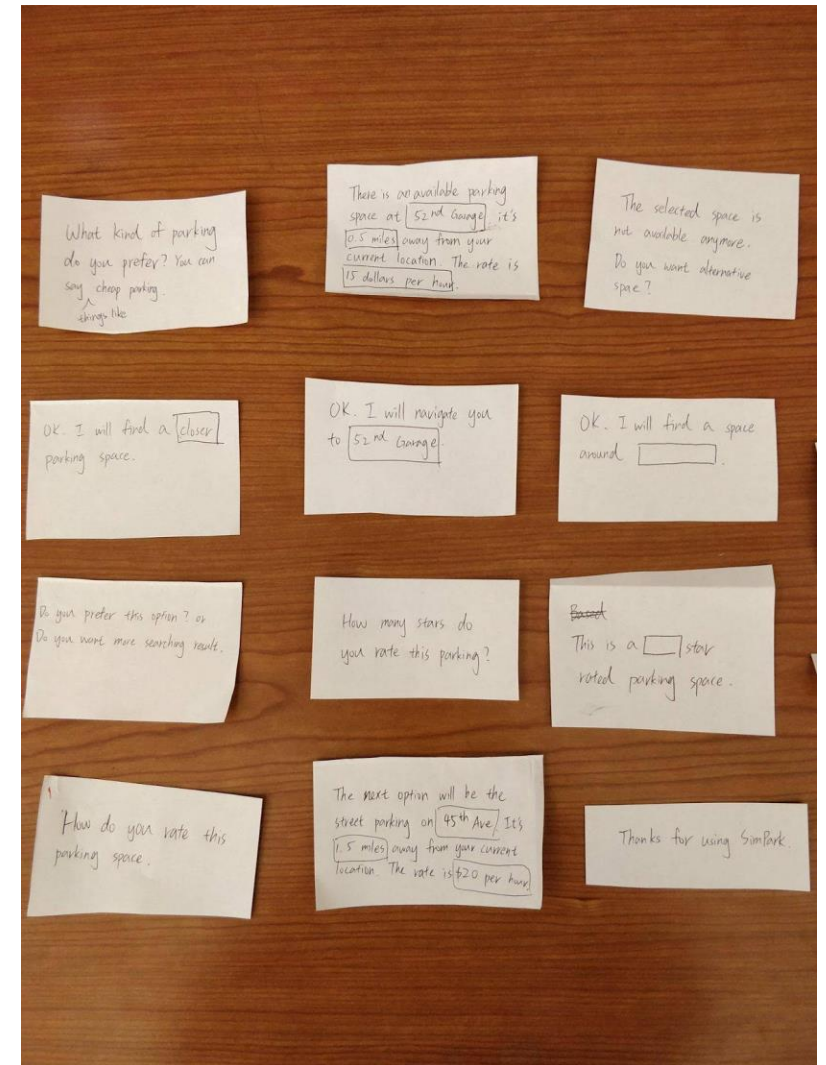 What kind of parking
do you prefer? You can
say cheap parking.
things like
There is an available parking
space at 52nd Garage it's
0.5 miles away from your
current location. The rate is
15 dollars per hour.
The selected space is
not available anymore.
Do you want alternative
spae?
OK. I will find a closer
parking space.
OK. I will navigate you
to 52nd Garage.
OK. I will find a space
around .
Do you prefer this option? or
Do you want more searching result.
How many stars do
you rate this parking?
Based
This is a star
rated parking space.
How do you rate this
parking space.
The next option will be the
street parking on 45th Ave. It's
1.5 miles away from your current
location. The rate is $20 per hour.
Thanks for using SimPark.